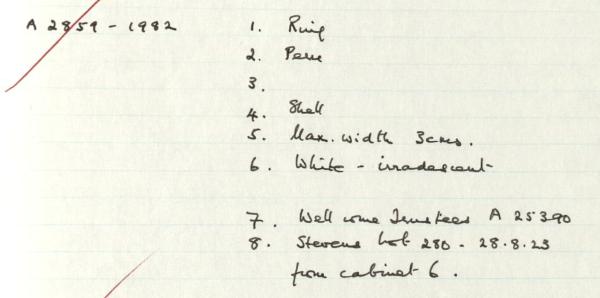 A 2859 - 1982 1. Ring
2. Peru
3.
4. Shell
5. Max. width 3cms.
6. White - irradescent
7. Wellcome Trustees A 25390
8. Stevens Lot 280 - 28.8.23
from cabinet 6.